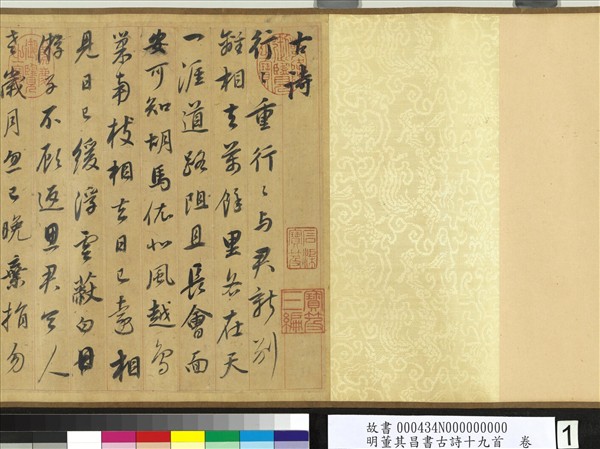 古詩
行〻重行〻與君新別
離相去萬餘里各在天
一涯道路阻且長會面
安可知胡馬依北風越鳥
巢南枝相去日已遠相
見日已緩浮雲蔽白日
游子不顧返思君令人
老歲月忽已晚棄捐勿
寶笈
三編
故書 000434N000000000
明董其昌書古詩十九首 卷
1